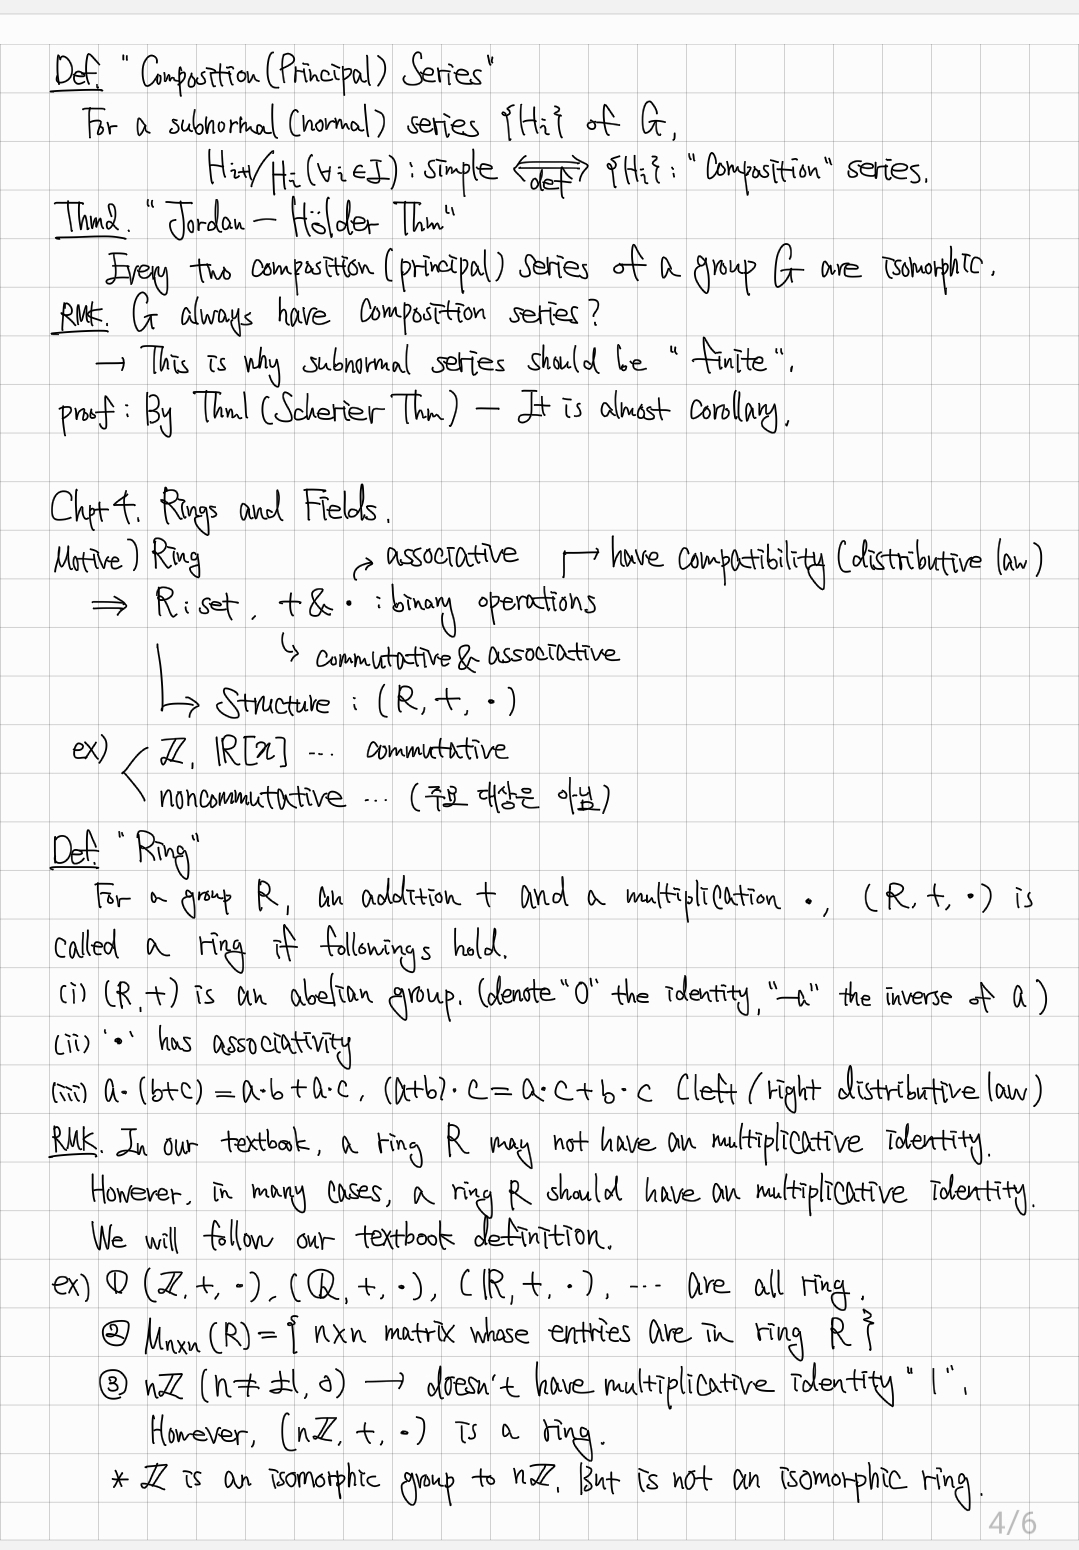 Def. "Composition (Principal) Series"
For a subnormal (normal) series {Hi} of G,
Hi+1/Hi (∀i∈I) : simple ⟺ def {Hi} : "Composition" series.
Thm2. "Jordan – Hölder Thm"
Every two composition (principal) series of a group G are isomorphic.
RMK. G always have composition series?
→ This is why subnormal series should be "finite".
proof : By Thm1 (Scherier Thm) – It is almost corollary.
Chpt 4. Rings and Fields.
Motive) Ring
associative
have compatibility (distributive law)
⇒ R : set, + & · : binary operations
commutative & associative
→ Structure : (R, +, ·)
ex) ℤ, ℝ[x] ... commutative
noncommutative ... (주요 대상은 아님)
Def. "Ring"
For a group R, an addition + and a multiplication ·, (R, +, ·) is
called a ring if followings hold.
(i) (R, +) is an abelian group. (denote "0" the identity, "-a" the inverse of a)
(ii) '·' has associativity
(iii) a·(b+c) = a·b + a·c, (a+b)·c = a·c + b·c (left / right distributive law)
RMK. In our textbook, a ring R may not have an multiplicative identity.
However, in many cases, a ring R should have an multiplicative identity.
We will follow our textbook definition.
ex) ① (ℤ, +, ·), (ℚ, +, ·), (ℝ, +, ·), ... are all ring.
② Mn×n (R) = { n×n matrix whose entries are in ring R }
③ nℤ (n ≠ ±1, 0) → doesn't have multiplicative identity "1".
However, (nℤ, +, ·) is a ring.
* ℤ is an isomorphic group to nℤ. But is not an isomorphic ring.
4/6